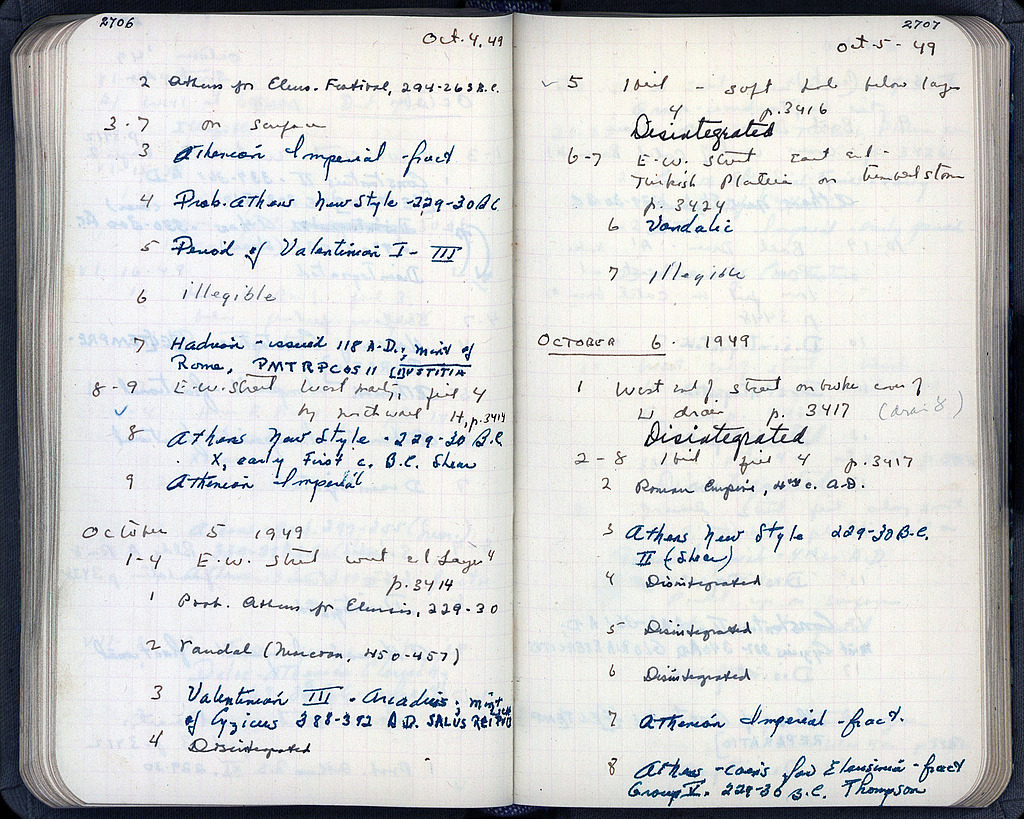 2706
Oct. 4. 49
2 Athens for Eleus. Festival, 294-263 B.C.
3-7 on surface
3 Athenian Imperial - fract
4 Prob. Athens New Style - 229-30 BC
5 Period of Valentinian I - III
6 illegible
7 Hadrian - issued 118 A.D.; mint of
Rome, PMTRPCOSII IUSTITIA
8-9 E-W. Street West part, fill 4
by north wall H, p.3414
8 Athens New Style - 229-30 B.C.
X, early First c. B.C. Shear
9 Athenian Imperial
October 5 1949
1-4 E-W. Street west end Layer 4
p.3414
1 Prob. Athens for Eleusis, 229-30
2 Vandal (Marcian, 450-457)
3 Valentinian III - Arcadius; mint
of Cyzicus 388-392 A.D. SALVS REIPVB
4 Disintegrated
2707
Oct-5-49
5 1 bil - soft below layer
4 p.3416
Disintegrated
6-7 E-W. Street East end -
Turkish Plateia on
p. 3424
6 Vandalic
7 illegible
OCTOBER 6. 1949
1 West end of street on broken cover of
drain p. 3417 (drain 8)
Disintegrated
2-8 1 bil fill 4 p.3417
2 Roman Empire, 4th c. A.D.
3 Athens New Style 229-30 B.C.
II (Shear)
4 Disintegrated
5 Disintegrated
6 Disintegrated
7 Athenian Imperial - fract.
8 Athens - coins for Eleusinia - fract
Group V. 229-30 B.C. Thompson